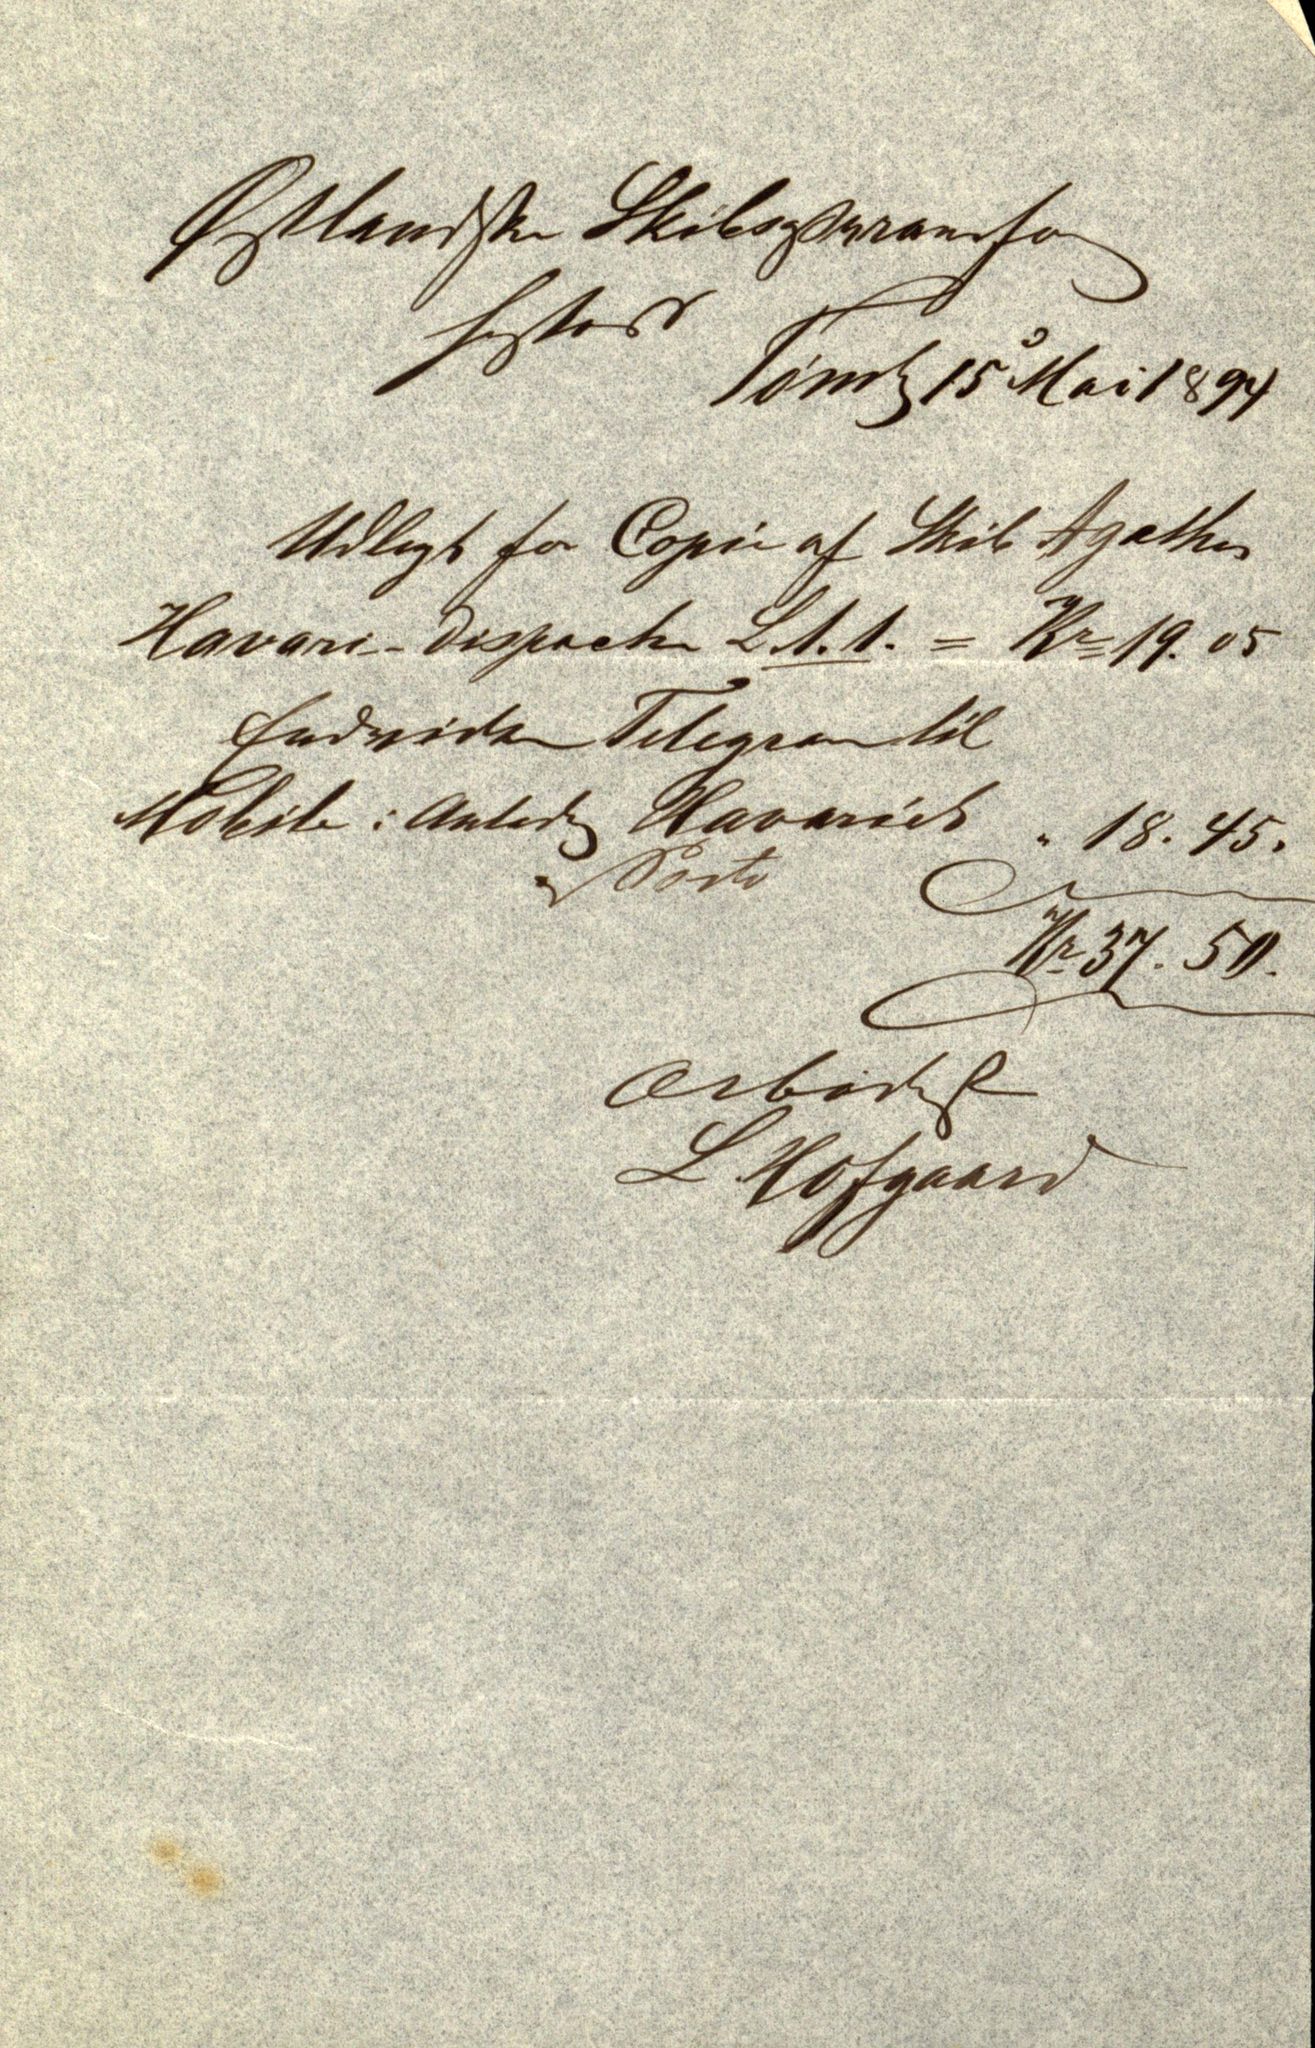 Østlandske Skibsassuranceforening
Tønsbg 15 Mai 1894
Udlagt for Copie af Skib Agathes
Havari-Dispache L 1.1. = Kr 19.05
Endvidere Telegram til
Mobile i Anledg Havariet " 18.45.
og Porto
Kr 37.50.
Ærbødigst
L. Hofgaard